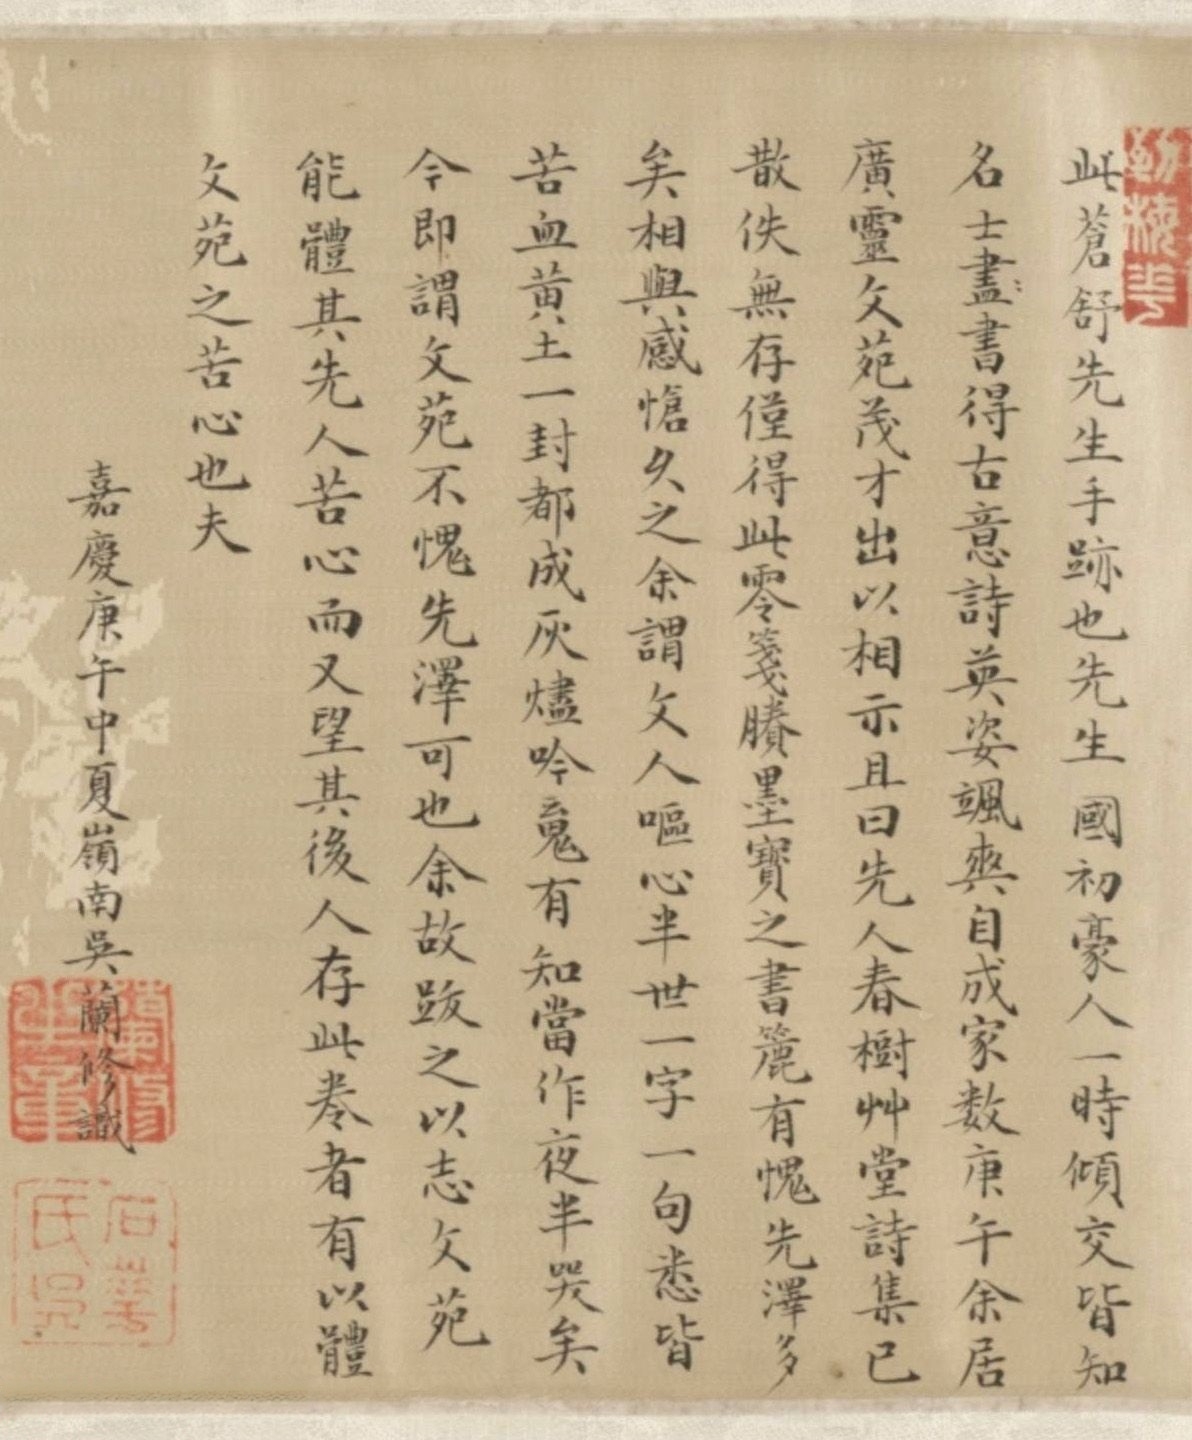 此蒼舒先生手跡也先生國初豪人一時傾交皆知
名士畫書得古意詩英姿颯爽自成家数庚午余居
廣靈文苑茂才出以相示且曰先人春樹艸堂詩集已
散佚無存僅得此零箋賸墨寶之書簏有愧先澤多
矣相與感愴久之余謂文人嘔心半世一字一句悉皆
苦血黃土一封都成灰燼吟䰟有知當作夜半哭矣
今即謂文苑不愧先澤可也余故跋之以志文苑
能體其先人苦心而又望其後人存此卷者有以體
文苑之苦心也夫
嘉慶庚午中夏嶺南吳蘭修識
石華
吳氏